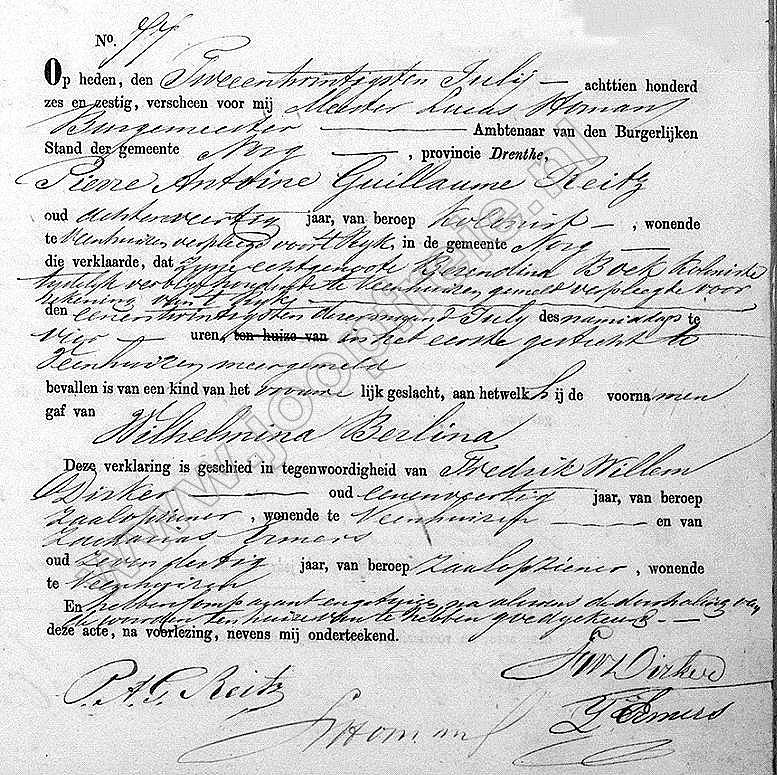 No. 77
Op heden, den Tweeentwintigsten Julij — achttien honderd
zes en zestig, verscheen voor mij Meester Lucas Homan
Burgemeester — Ambtenaar van den Burgerlijken
Stand der gemeente Norg — , provincie Drenthe,
Pierre Antoine Guillaume Reitz
oud achtenveertig jaar, van beroep Kolonist — , wonende
te Veenhuizen verpleegd voor 't Rijk, in de gemeente Norg —
die verklaarde, dat zijne echtgenoote Berendina Boek Koloniste
tijdelijk verblijfhoudende te Veenhuizen gemeld verpleegde voor
rekening van 't Rijk —
den eenentwintigsten dezer maand July des namiddags te
vier — uren, ten huize van in het eerste gesticht te
Veenhuizen meergemeld
bevallen is van een kind van het vrouwe lijk geslacht, aan hetwelk hij de voornamen
gaf van
Wilhelmina Berlina
Deze verklaring is geschied in tegenwoordigheid van Fredrik Willem
Dirker — oud eenenveertig jaar, van beroep
Zaalopziener , wonende te Veenhuizen — en van
Zacharias Ermers
oud zevendertig jaar, van beroep Zaalopziener , wonende
te Veenhuizen
En hebben comparant en getuigen na alvorens de doorhaling van
de woorden ten huize van te hebben goedgekeurd —
deze acte, na voorlezing, nevens mij onderteekend.
FW Dirker
P. A. G. Reitz
Z Ermers
L Homan
www.joopfreie.nl